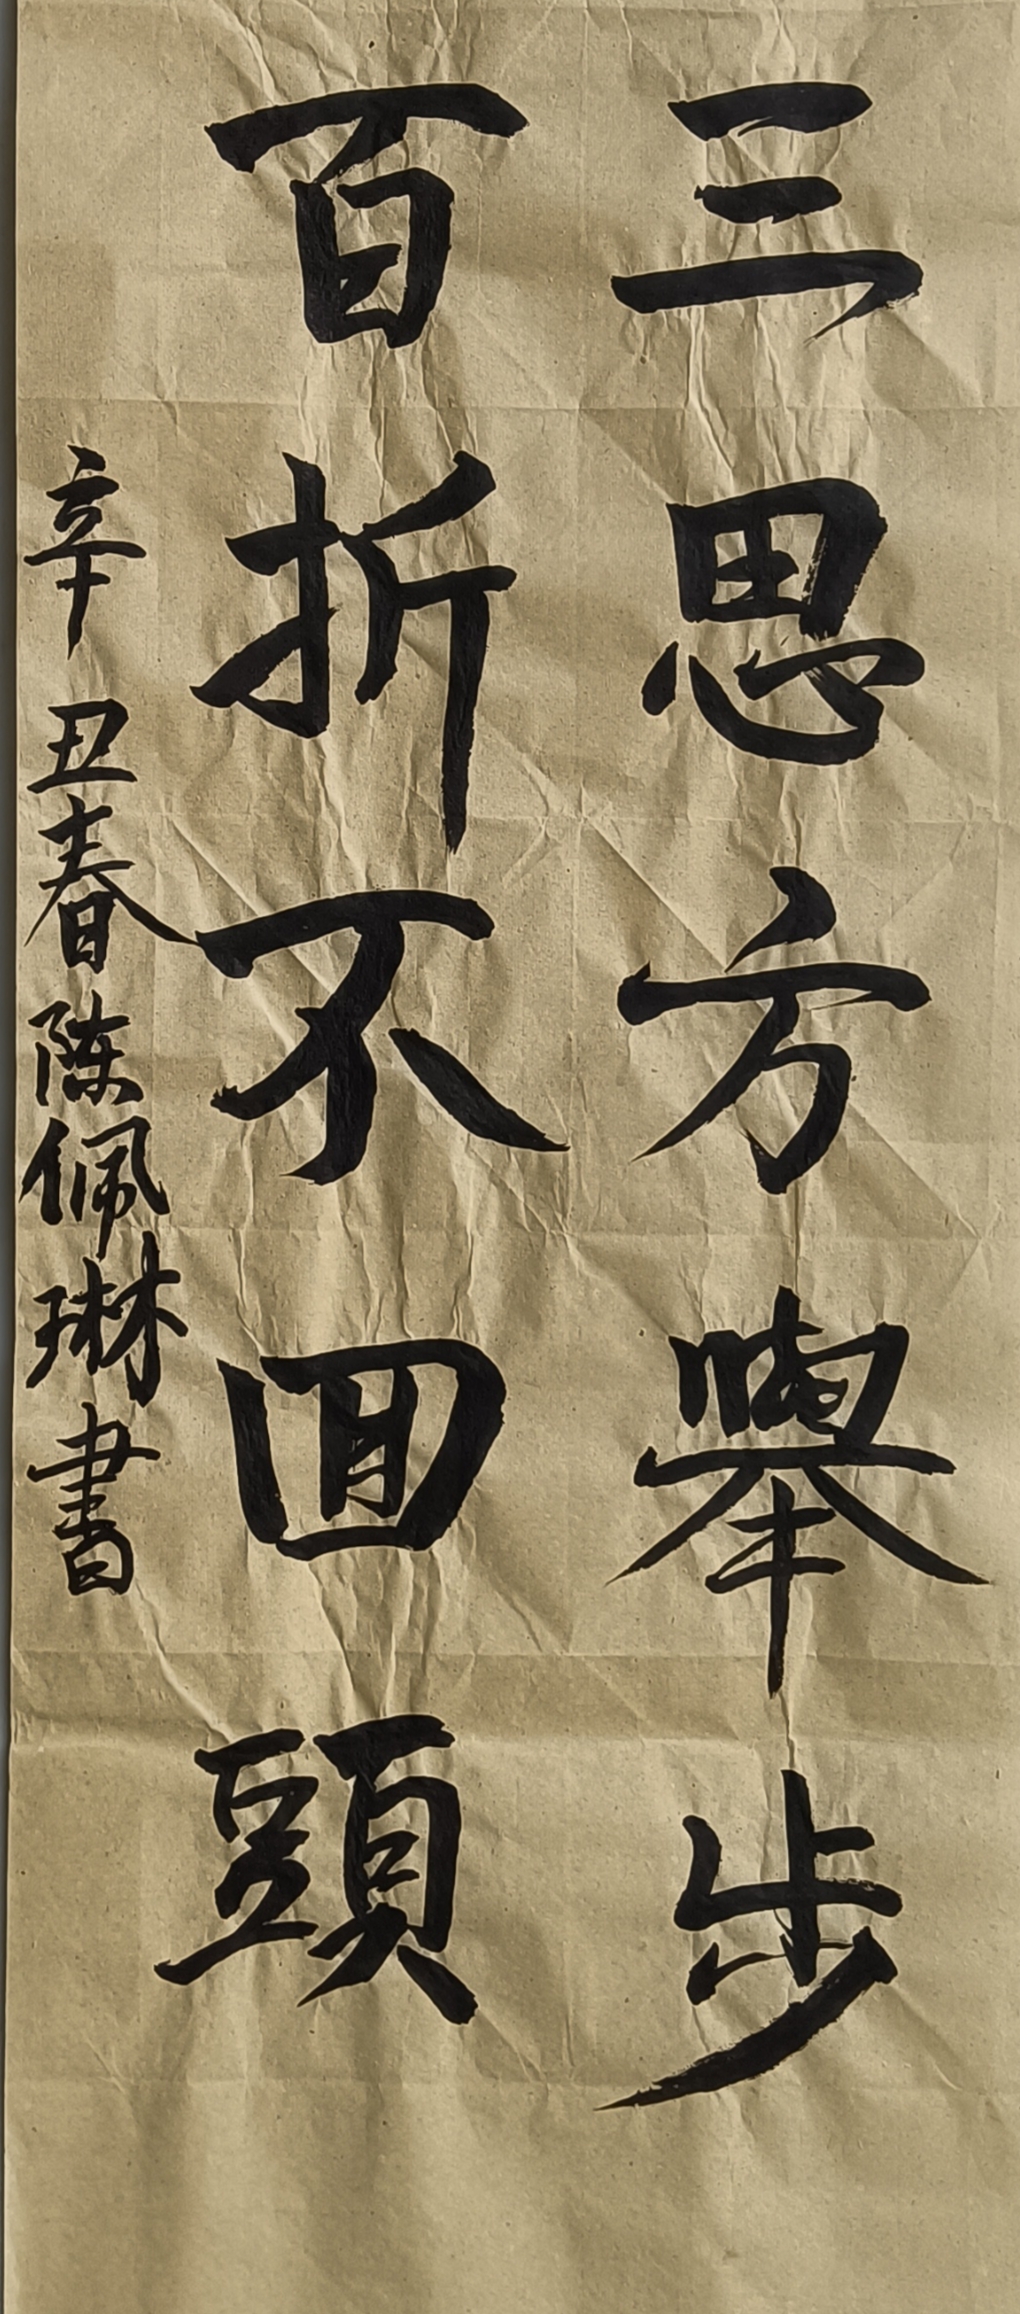 三思方舉步
百折不回頭
辛丑春陈佩琳書